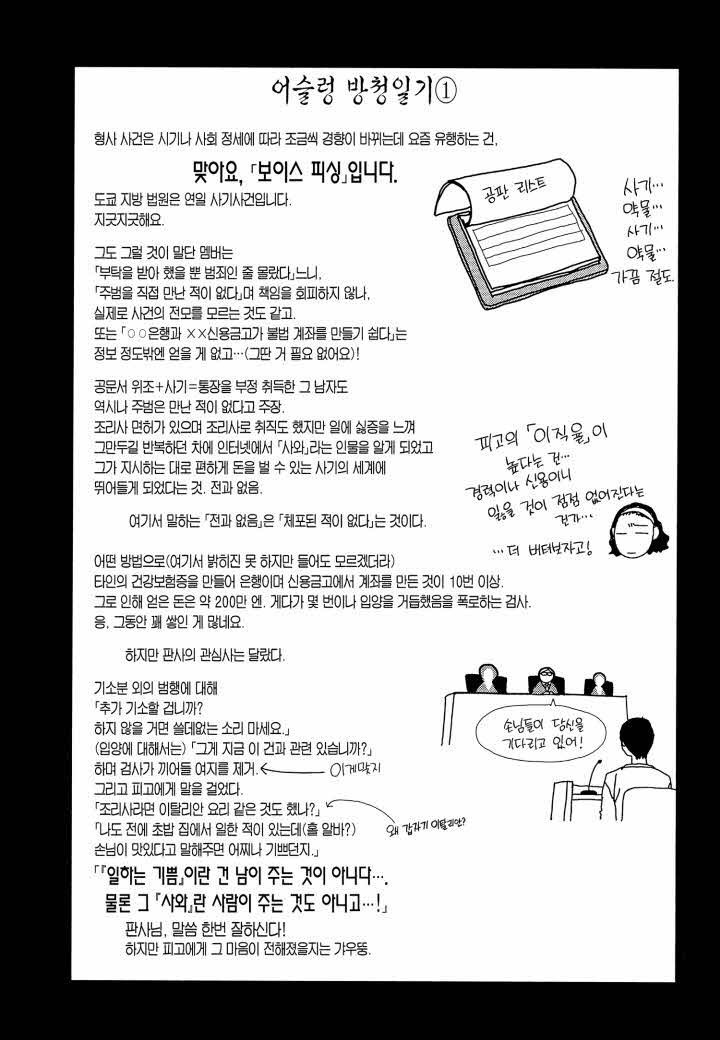 어슬렁 방청일기①
형사 사건은 시기나 사회 정세에 따라 조금씩 경향이 바뀌는데 요즘 유행하는 건,
맞아요, 「보이스 피싱」입니다.
도쿄 지방 법원은 연일 사기사건입니다.
지긋지긋해요.
공판 리스트
사기…
약물…
사기…
약물…
가끔 절도.
그도 그럴 것이 말단 멤버는
「부탁을 받아 했을 뿐 범죄인 줄 몰랐다」느니,
「주범을 직접 만난 적이 없다」며 책임을 회피하지 않나,
실제로 사건의 전모를 모르는 것도 같고.
또는 「○○은행과 ××신용금고가 불법 계좌를 만들기 쉽다」는
정보 정도밖엔 얻을 게 없고…(그딴 거 필요 없어요)!
공문서 위조+사기=통장을 부정 취득한 그 남자도
역시나 주범은 만난 적이 없다고 주장.
조리사 면허가 있으며 조리사로 취직도 했지만 일에 싫증을 느껴
그만두길 반복하던 차에 인터넷에서 「사와」라는 인물을 알게 되었고
그가 지시하는 대로 편하게 돈을 벌 수 있는 사기의 세계에
뛰어들게 되었다는 것. 전과 없음.
여기서 말하는 「전과 없음」은 「체포된 적이 없다」는 것이다.
피고의 「이직율」이
높다는 건…
경력이나 신용이니
잃을 것이 점점 없어진다는
건가…
…더 버텨보자고!
어떤 방법으로(여기서 밝히진 못 하지만 들어도 모르겠더라)
타인의 건강보험증을 만들어 은행이며 신용금고에서 계좌를 만든 것이 10번 이상.
그로 인해 얻은 돈은 약 200만 엔. 게다가 몇 번이나 입양을 거듭했음을 폭로하는 검사.
응, 그동안 꽤 쌓인 게 많네요.
하지만 판사의 관심사는 달랐다.
기소분 외의 범행에 대해
「추가 기소할 겁니까?
하지 않을 거면 쓸데없는 소리 마세요.」
(입양에 대해서는) 「그게 지금 이 건과 관련 있습니까?」
하며 검사가 끼어들 여지를 제거.
이게 맞지
그리고 피고에게 말을 걸었다.
「조리사라면 이탈리안 요리 같은 것도 했나?」
왜 갑자기 이탈리안?
「나도 전에 초밥 집에서 일한 적이 있는데(홀 알바?)
손님이 맛있다고 말해주면 어찌나 기쁘던지.」
손님들이 당신을
기다리고 있어!
「『일하는 기쁨』이란 건 남이 주는 것이 아니다….
물론 그 『사와』란 사람이 주는 것도 아니고…!」
판사님, 말씀 한번 잘하신다!
하지만 피고에게 그 마음이 전해졌을지는 갸우뚱.